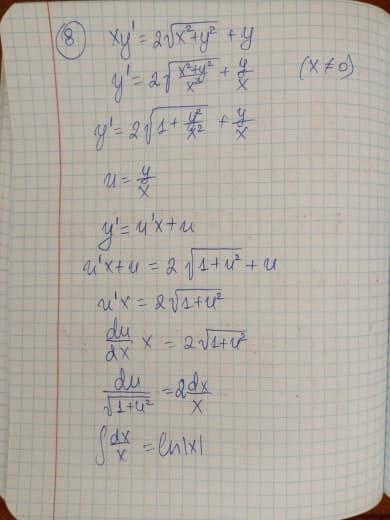 8 xy' = 2√(x²+y²) + y
y' = 2√((x²+y²)/x²) + y/x (x ≠ 0)
y' = 2√(1 + y²/x²) + y/x
u = y/x
y' = u'x + u
u'x + u = 2√(1+u²) + u
u'x = 2√(1+u²)
du/dx x = 2√(1+u²)
du/√(1+u²) = 2dx/x
∫dx/x = ln|x|